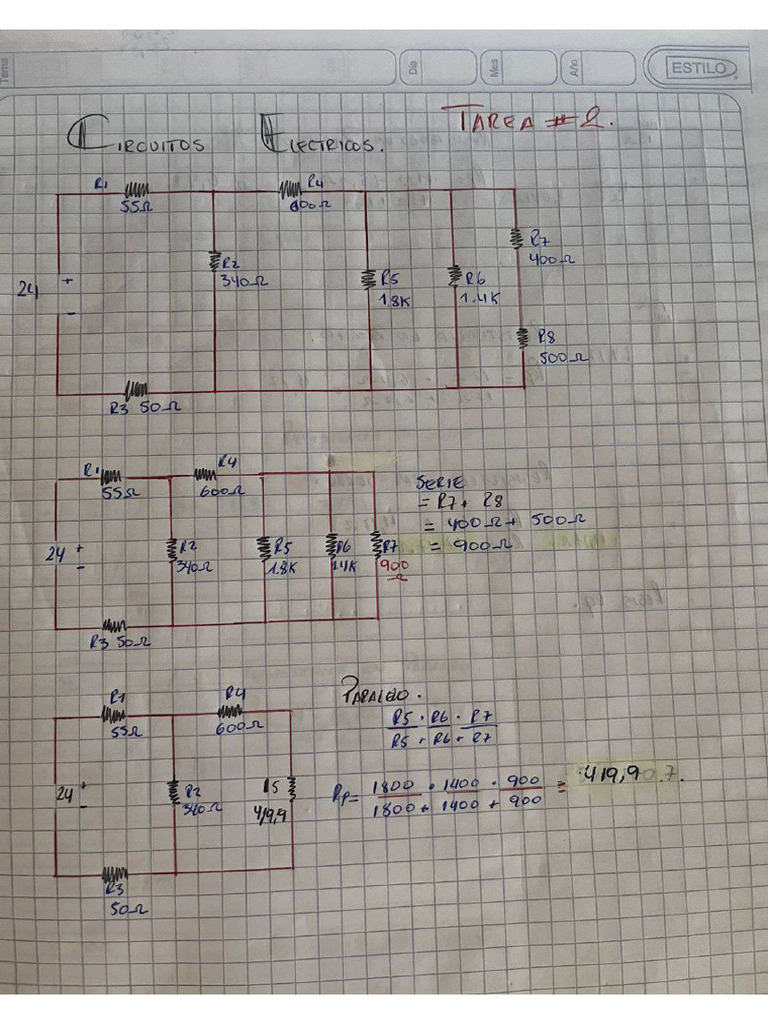 Tema
Día
Mes
Año
ESTILO
TAREA #2.
CIRCUITOS ELECTRICOS.
R1
55Ω
R4
600Ω
R2
340Ω
24
+
-
R5
1.8K
R6
1.4K
R7
400Ω
R8
500Ω
R3 50Ω
R1
55Ω
R4
600Ω
24
+
-
R2
340Ω
R5
1.8K
R6
1.4K
R7
900
Ω
R3 50Ω
SERIE
= R7 + R8
= 400Ω + 500Ω
= 900Ω
R1
55Ω
R4
600Ω
24
+
-
R2
340Ω
R5
419,9
R3
50Ω
PARALELO.
R5 · R6 · R7
R5 + R6 + R7
Rp = 1800 · 1400 · 900
1800 + 1400 + 900
= 419,90 7.